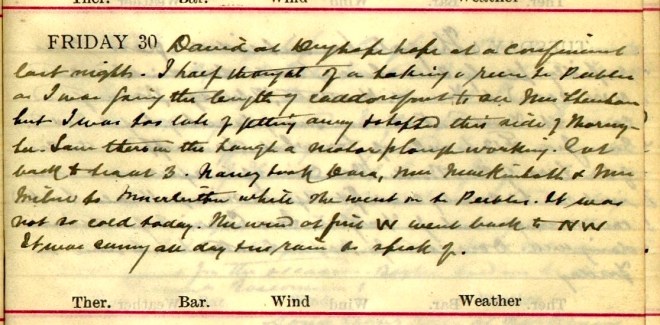 Ther. Bar. Wind Weather
FRIDAY 30 David at hope at a confinement
last night. I half thought of a taking a run to Peebles
as I was going the length of to see Mrs
but I was too late of getting away & stopped this side of
Saw there in the haugh a motor plough working. Got
back to about 3. Nancy took Dora, Mrs & Mrs
Milne to Innerleithen while she went on to Peebles. It was
not so cold today. The wind at first W went back to NW
It was sunny all day & no rain to speak of.
Ther. Bar. Wind Weather